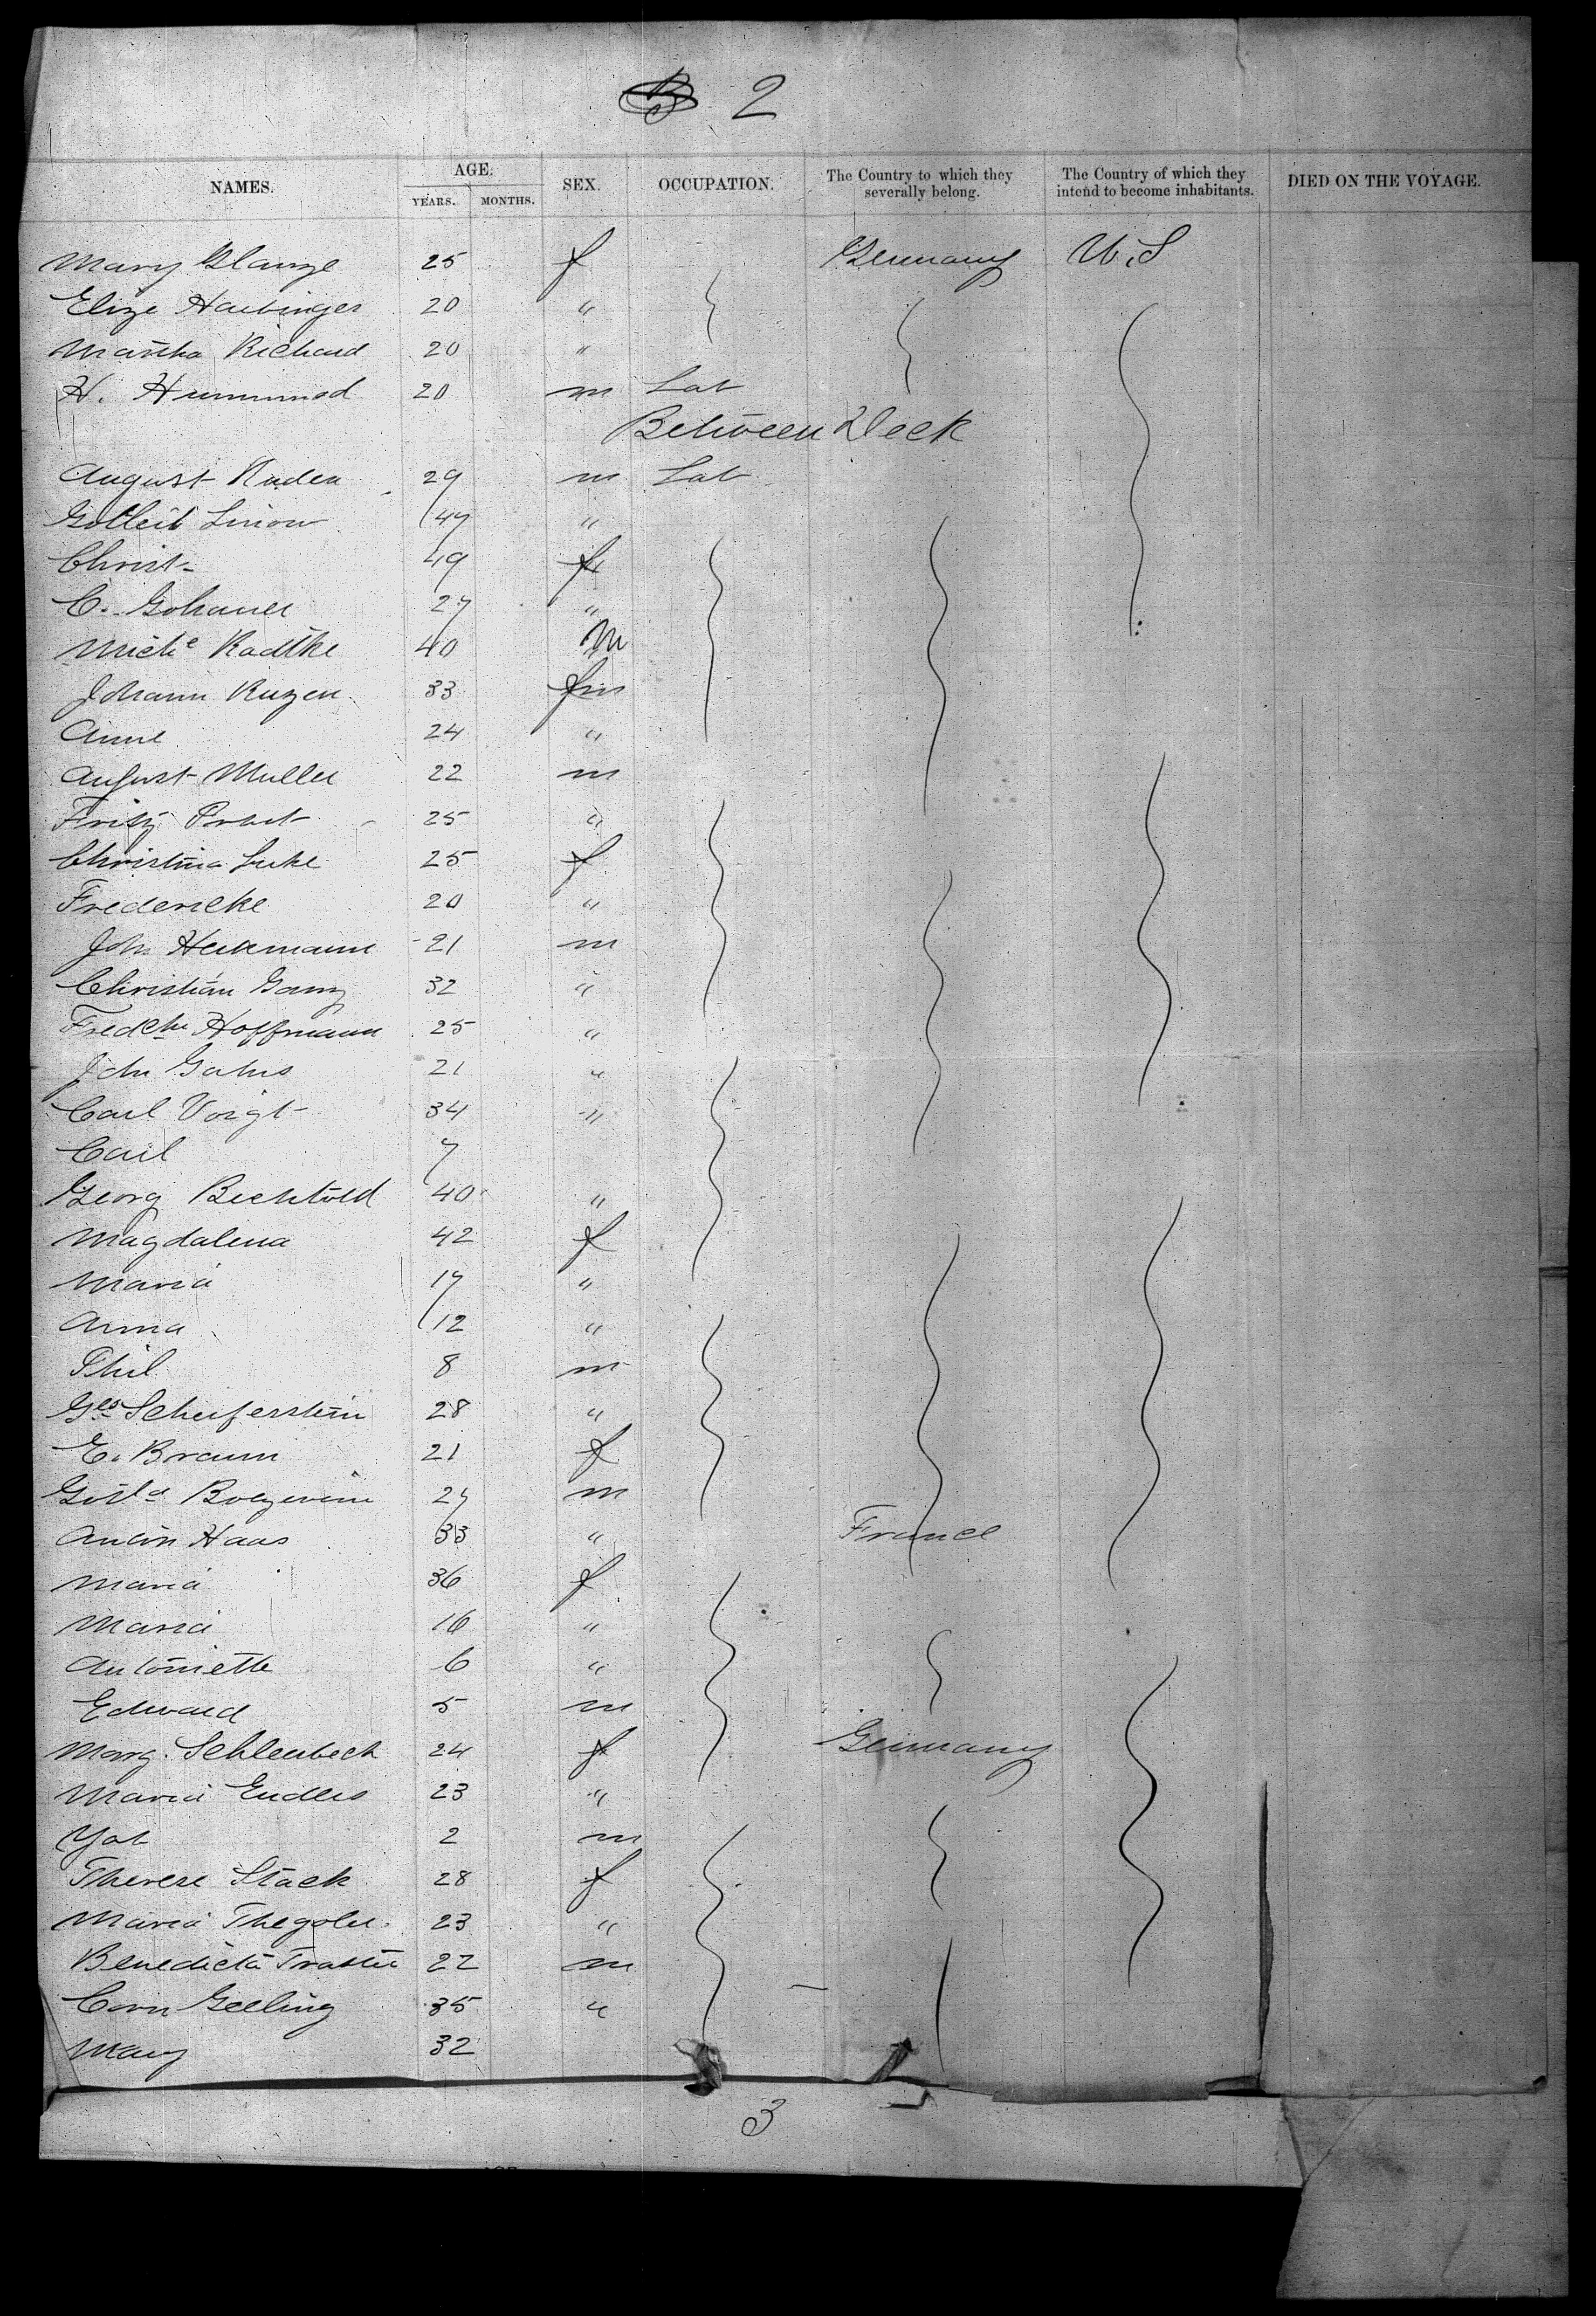 2
NAMES. AGE. YEARS. MONTHS. SEX. OCCUPATION. The Country to which they severally belong. The Country of which they intend to become inhabitants. DIED ON THE VOYAGE.
Mary Glanze 25 f Germany U.S
Elize Haibinger 20 "
Martha Richard 20 "
H. Hummod 20 m Lab
Between Deck
August 29 m Lab
Gottleib 47 "
Christ- 49 f
C. 27 "
Mich^e Radtke 40 M
Johann 33 m
Anne 24 "
August Muller 22 m
Fritz 25 "
Christina Luke 25 f
Fredericke 20 "
John Heckmann 21 m
Christian Ganz 32 "
Fredch Hoffmann 25 "
John Gahns 21 "
Carl Voigt 34 "
Carl 7
Georg Bechtold 40 "
Magdalena 42 f
Maria 17 "
Anna 12 "
Phil 8 m
Geo Scheiferstein 28 "
E. Braun 21 f
27 m
Anton Haas 33 " France
Maria 36 f
Maria 16 "
Antoniette 6 "
Edward 5 m
Marg. Schlenbech 24 f Germany
Maria Endles 23 "
2 m
Therese Stack 28 f
Maria 23 "
Benedicta 22 m
Corn Geeling 35 "
Mary 32
3